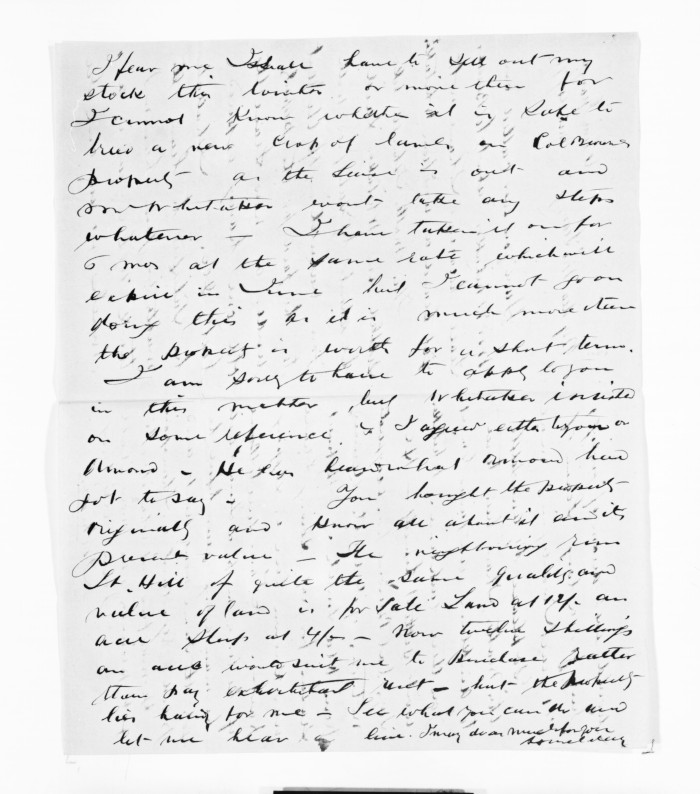 I fear me I shall have to sell out my
stock this winter or more then for
I cannot know whether it is safe to
a new crop of lambs on Col Browns
property as the lease is out and
Mr Whitaker wont take any steps
whatever — I have taken it on for
6 mos at the same rate which will
expire in June but I cannot go on
doing this, as it is much more than
the property is worth for a short term.
I am sorry to have to apply to you
in this matter, but Whitaker insisted
on some reference & I agreed either to you or
Ormond — He has heard what Ormond has
got to say — You bought the property
originally and know all about it and its
present value — The neighbouring run
St. Hill of quite the same quality and
value of land is for sale Land at 12/- an
acre Sheep at 4/- — Now twelve shillings
an acre would suit me to purchase rather
than pay exhorbitant rent — but the property
lies handy for me — See what you can do and
let me hear a line. I may do as much for you
some day